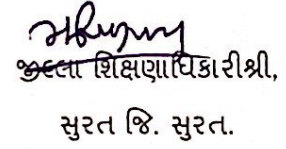 જીલ્લા શિક્ષણાધિકારીશ્રી,
સુરત જિ. સુરત.